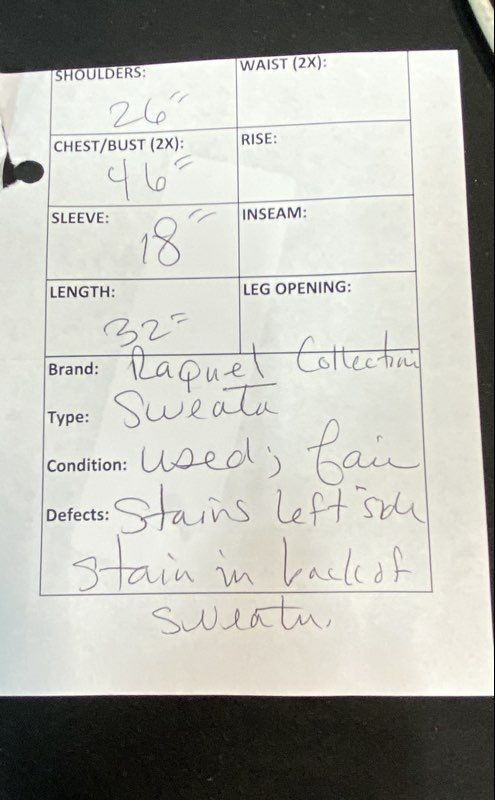 SHOULDERS: WAIST (2X):
26"
CHEST/BUST (2X): RISE:
46"
SLEEVE: INSEAM:
18"
LENGTH: LEG OPENING:
32"
Brand: Raquel Collection
Type: Sweater
Condition: used; fair
Defects: Stains left side
stain in back of
sweater.